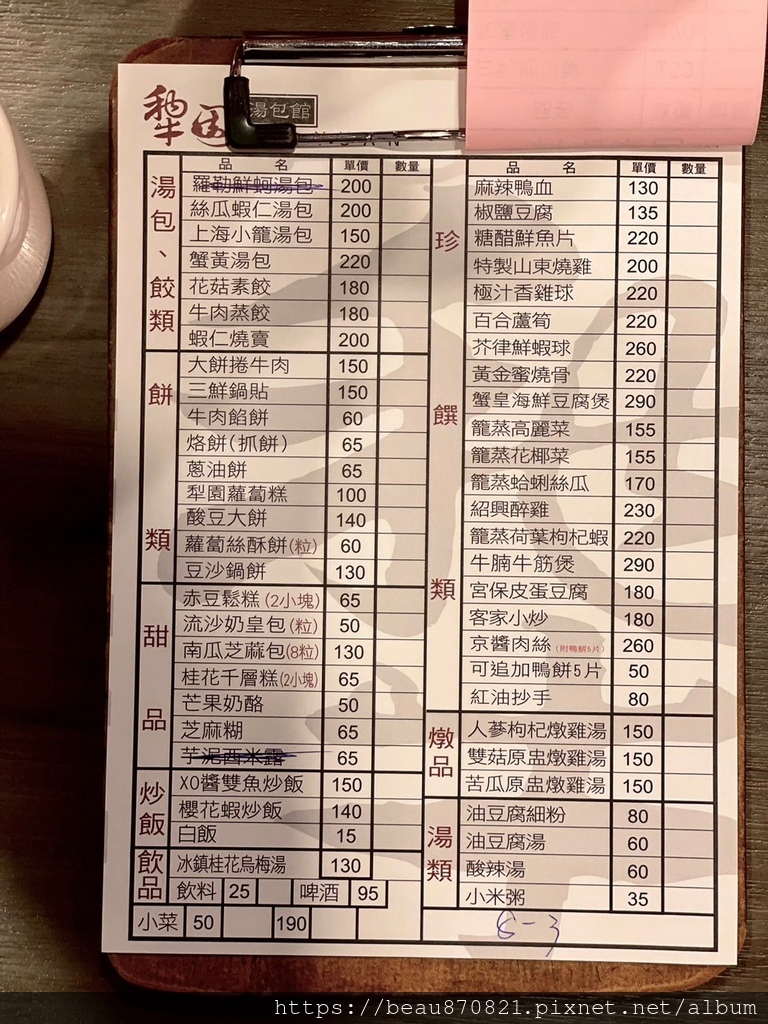 犁园湯包館
品 名 單價 數量
湯包、餃類
羅勒鮮蚵湯包 200
絲瓜蝦仁湯包 200
上海小籠湯包 150
蟹黃湯包 220
花菇素餃 180
牛肉蒸餃 180
蝦仁燒賣 200
餅類
大餅捲牛肉 150
三鮮鍋貼 150
牛肉餡餅 60
烙餅(抓餅) 65
蔥油餅 65
犁園蘿蔔糕 100
酸豆大餅 140
蘿蔔絲酥餅(粒) 60
豆沙鍋餅 130
甜品
赤豆鬆糕(2小塊) 65
流沙奶皇包(粒) 50
南瓜芝蔴包(8粒) 130
桂花千層糕(2小塊) 65
芒果奶酪 50
芝麻糊 65
芋泥西米露 65
炒飯
XO醬雙魚炒飯 150
櫻花蝦炒飯 140
白飯 15
飲品
冰鎮桂花烏梅湯 130
飲料 25 啤酒 95
小菜 50 190
品 名 單價 數量
珍饌類
麻辣鴨血 130
椒鹽豆腐 135
糖醋鮮魚片 220
特製山東燒雞 200
極汁香雞球 220
百合蘆筍 220
芥律鮮蝦球 260
黃金蜜燒骨 220
蟹皇海鮮豆腐煲 290
籠蒸高麗菜 155
籠蒸花椰菜 155
籠蒸蛤蜊絲瓜 170
紹興醉雞 230
籠蒸荷葉枸杞蝦 220
牛腩牛筋煲 290
宮保皮蛋豆腐 180
客家小炒 180
京醬肉絲(附鴨餅5片) 260
可追加鴨餅5片 50
紅油抄手 80
燉品
人蔘枸杞燉雞湯 150
雙菇原盅燉雞湯 150
苦瓜原盅燉雞湯 150
湯類
油豆腐細粉 80
油豆腐湯 60
酸辣湯 60
小米粥 35
6-3
https://beau870821.pixnet.net/album